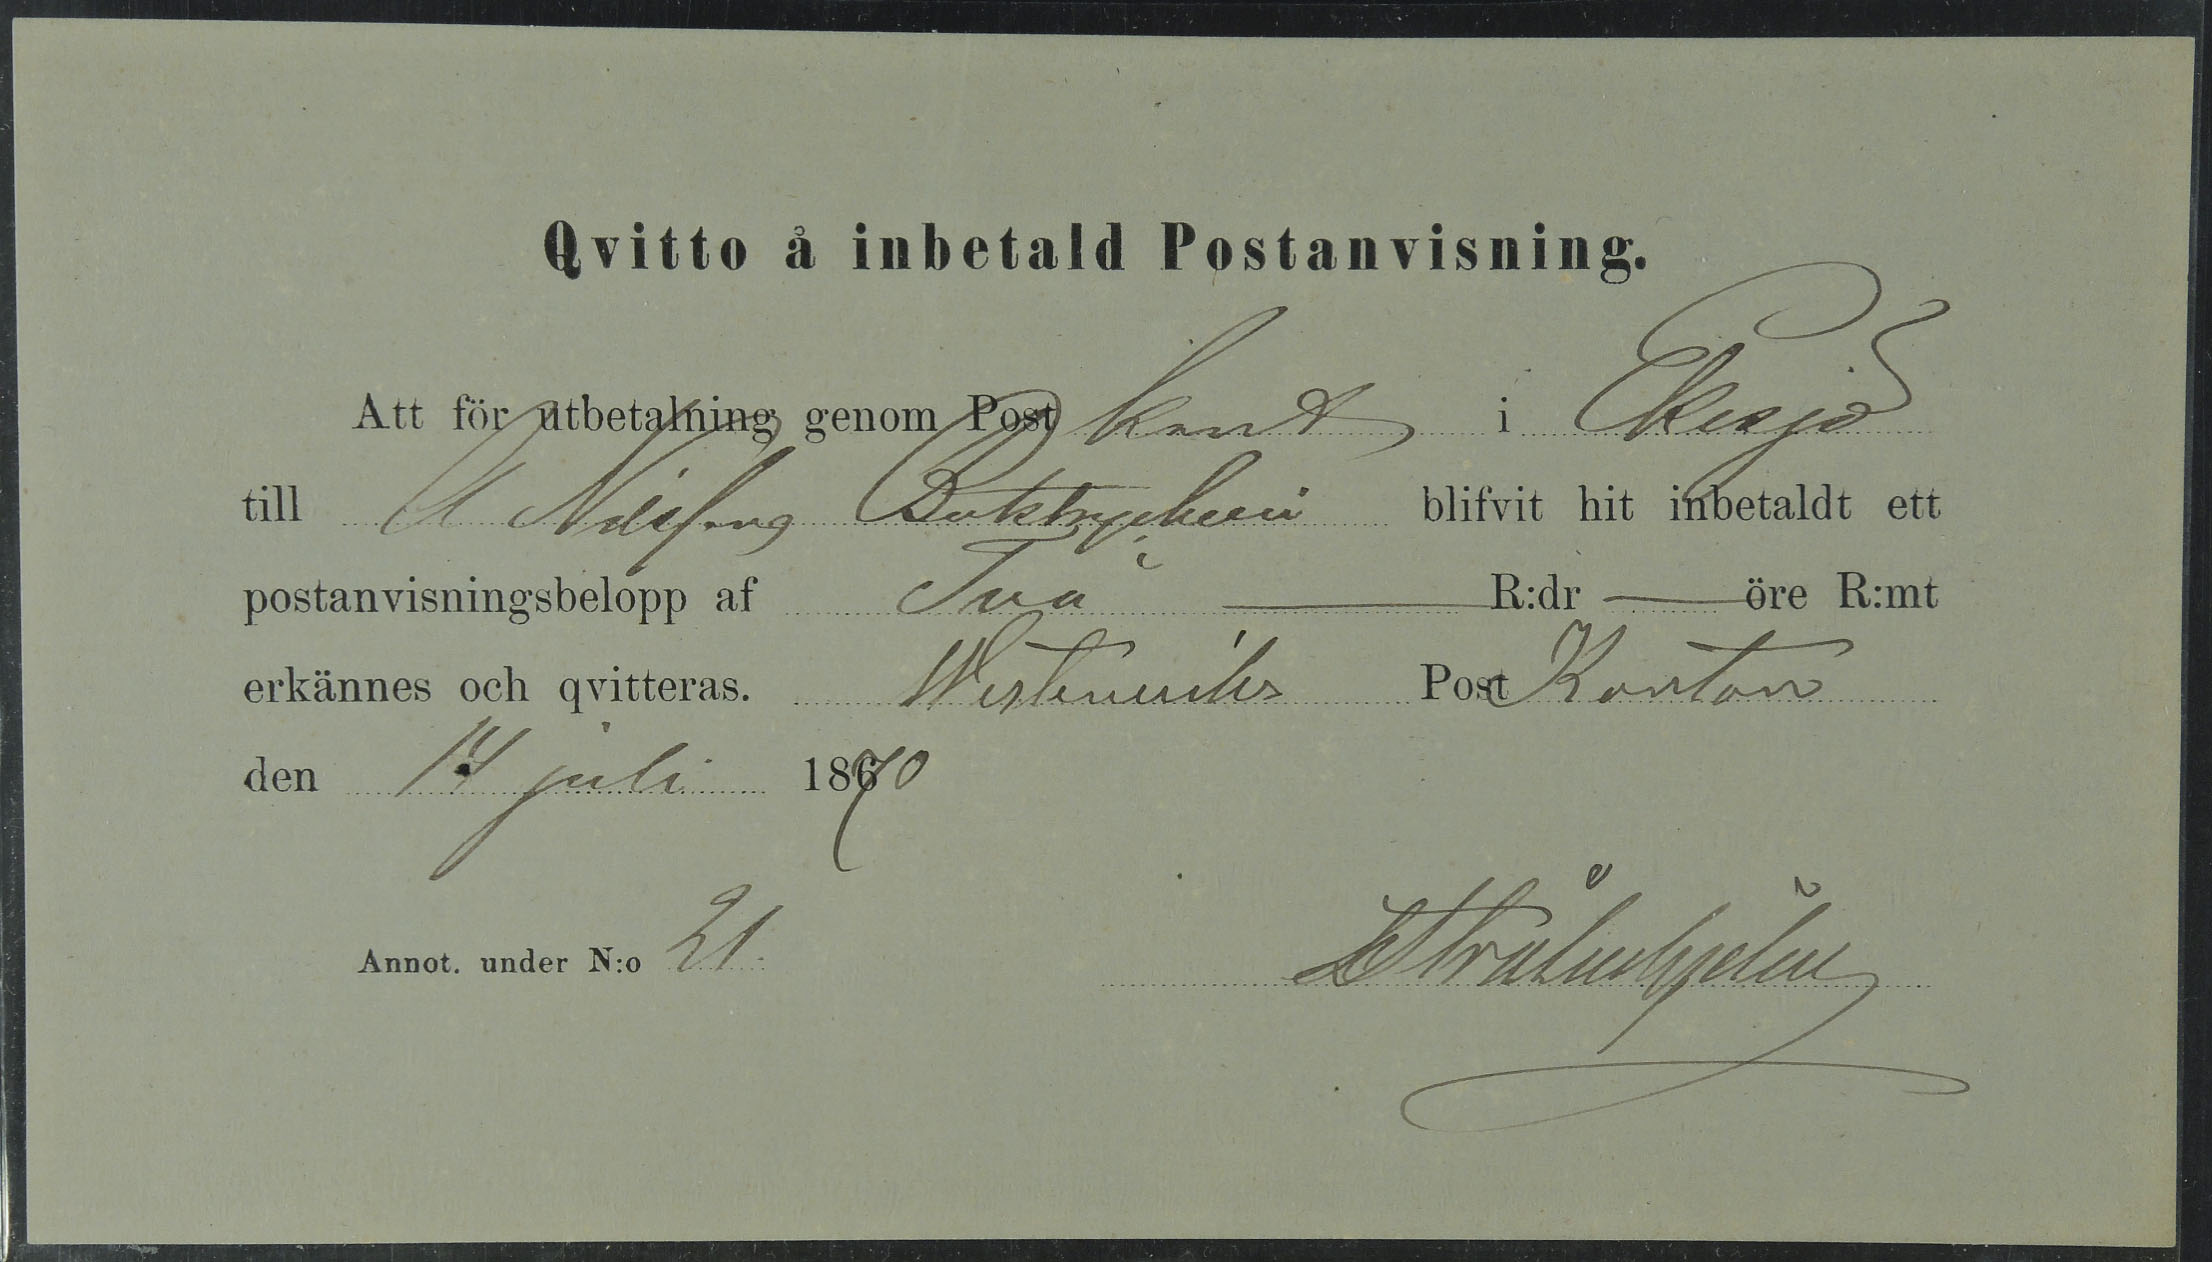 Qvitto å inbetald Postanvisning.
Att för utbetalning genom Post kont i Eksjö
till A Boktryckeri blifvit hit inbetaldt ett
postanvisningsbelopp af Två — R:dr — öre R:mt
erkännes och qvitteras. Westerviks Post Kontor
den 14 juli 18670
Annot. under N:o 21.